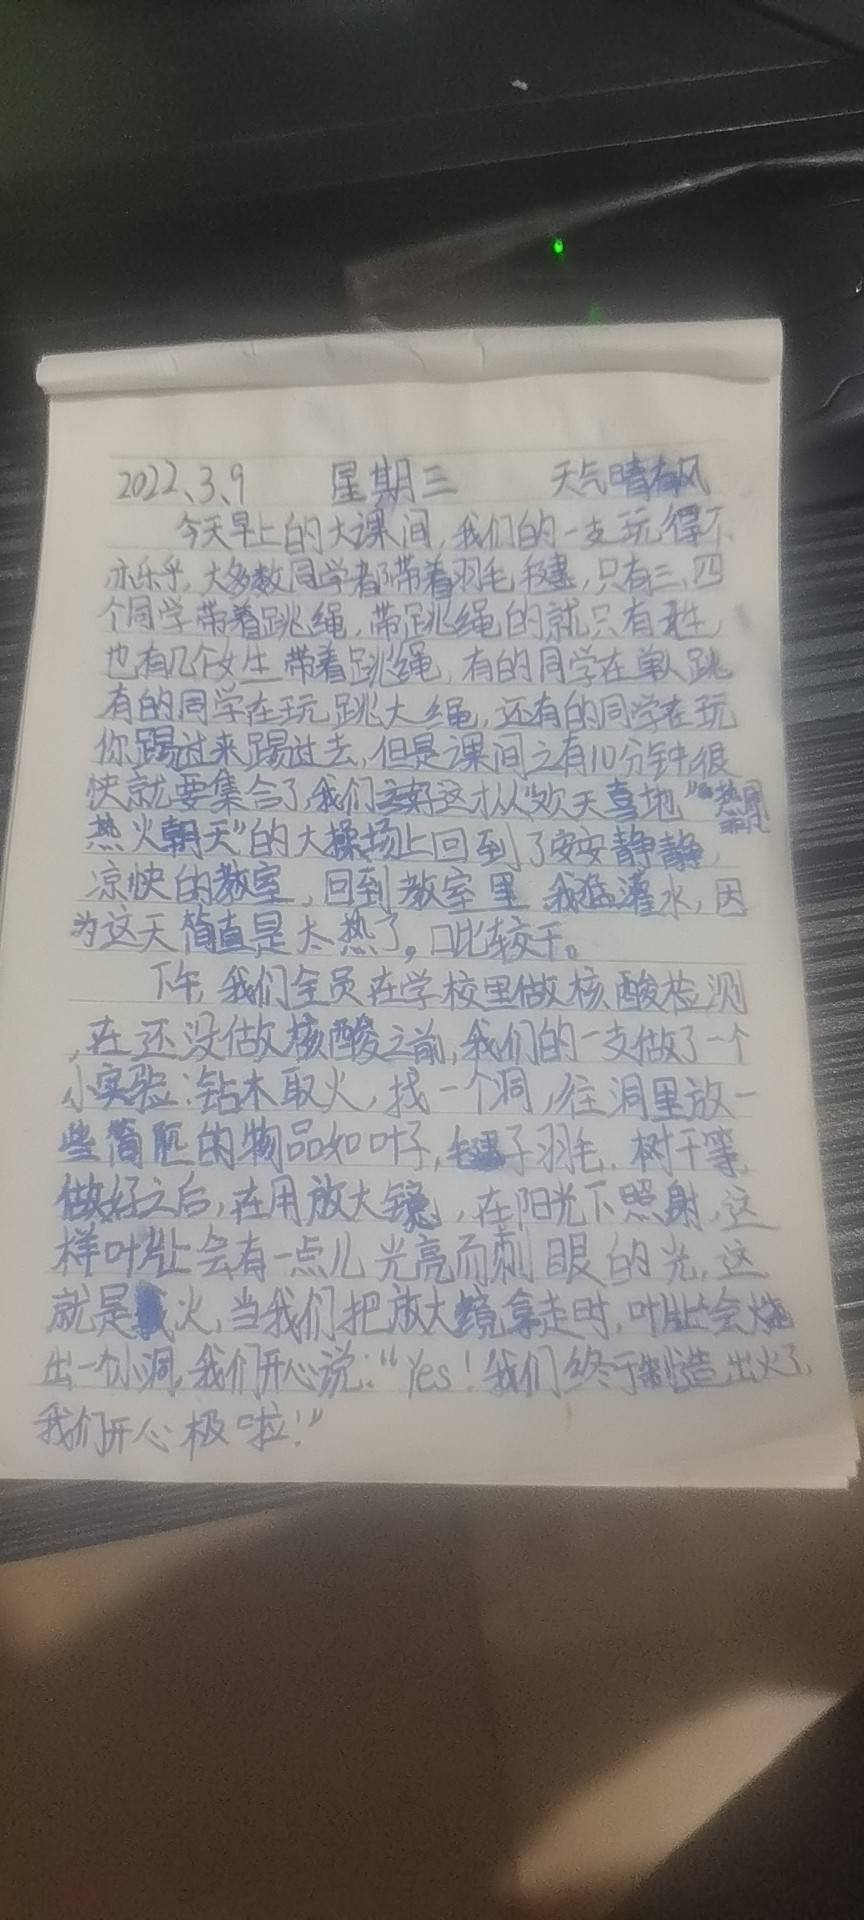 2022、3、9 星期三 天气晴有风
今天早上的大课间,我们的一支玩得不
亦乐乎,大多数同学都带着羽毛毛毽,只有三、四
个同学带着跳绳,带跳绳的就只有男生,
也有几个女生带着跳绳,有的同学在单人跳
有的同学在玩跳大绳,还有的同学在玩
你踢过来踢过去,但是课间之有10分钟很
快就要集合了,我们这才从“欢天喜地”
热火朝天”的大操场上回到了安安静静,
凉快的教室,回到教室里我猛灌水,因
为这天简直是太热了,口比较干。
下午,我们全员在学校里做核酸检测
,在还没做核酸之前,我们的一支做了一个
小实验:钻木取火,找一个洞,往洞里放一
些简陋的物品如叶子,子羽毛,树干等,
做好之后,在用放大镜,在阳光下照射,这
样叶片上会有一点儿光亮而刺眼的光,这
就是火,当我们把放大镜拿走时,叶片上会烧
出一个小洞,我们开心说:“Yes!我们终于制造出火了,
我们开心极啦!”